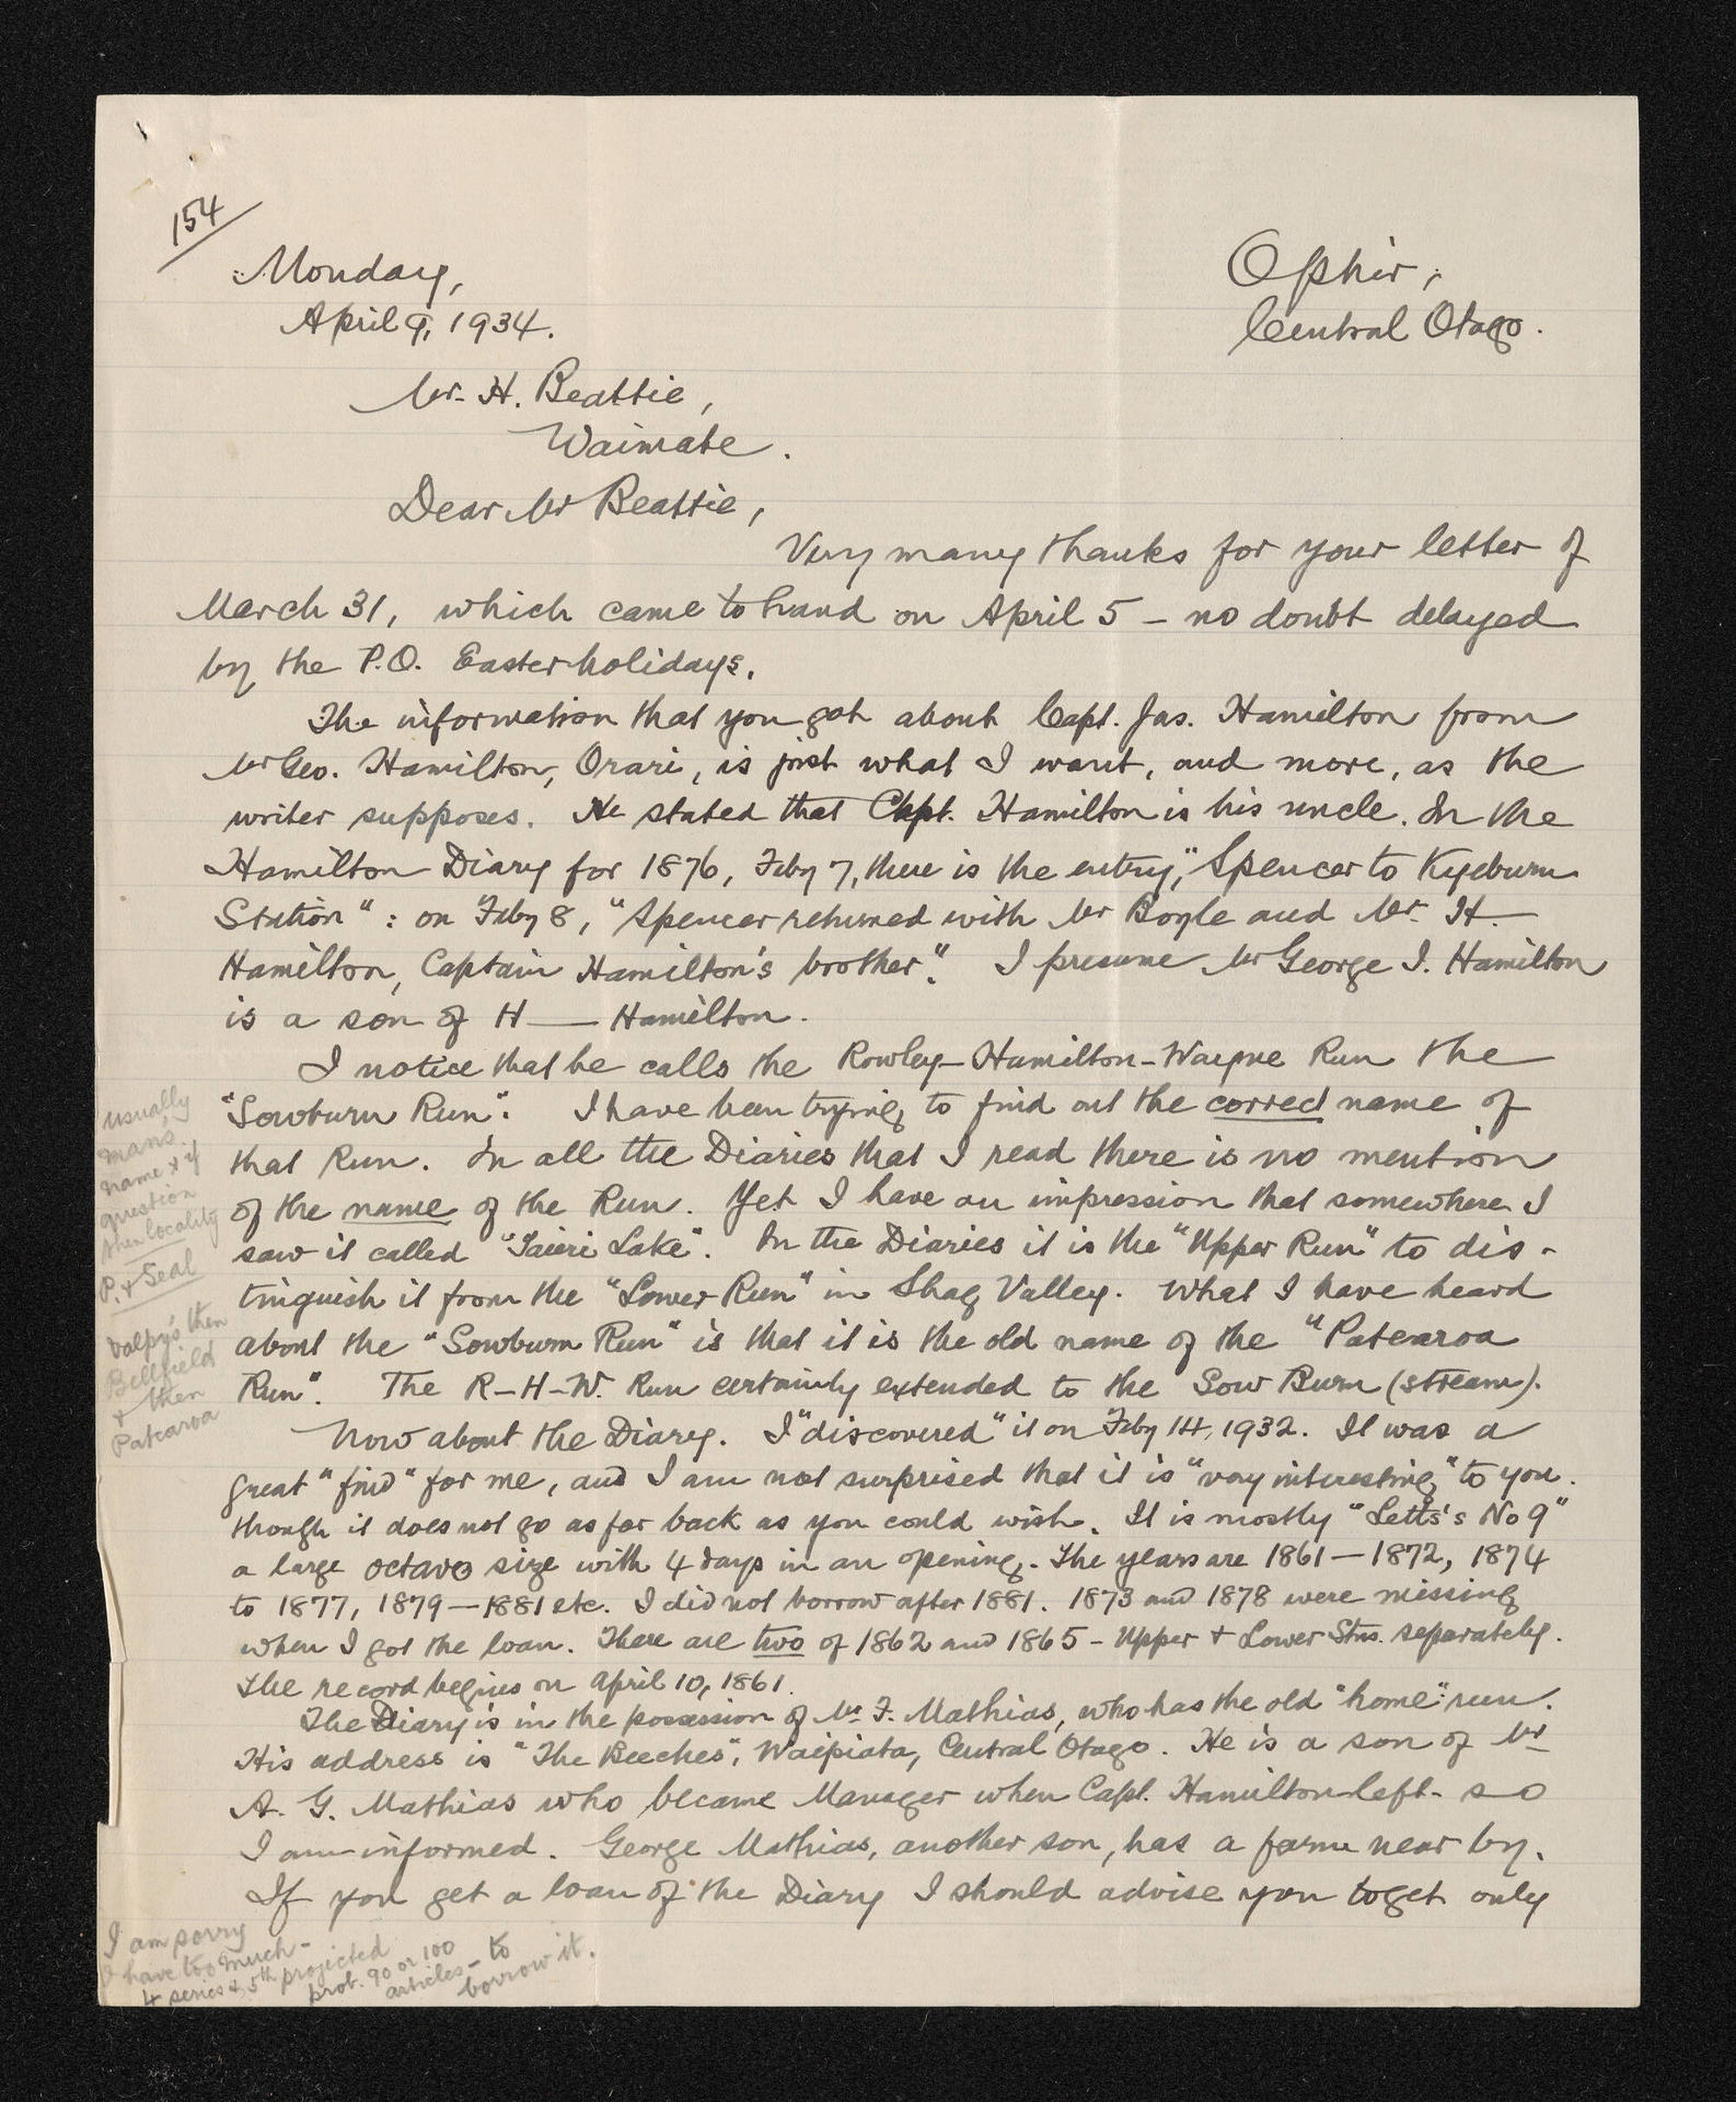 154
Monday,
April 9, 1934.
Ophir,
Central Otago.
Mr. H. Beattie,
Waimate.
Dear Mr Beattie,
Very many thanks for your letter of
March 31, which came to hand on April 5 – no doubt delayed
by the P.O. Easter holidays.
The information that you got about Capt. Jas. Hamilton from
Mr Geo. Hamilton, Orari, is just what I want, and more, as the
writer supposes. He stated that Capt. Hamilton is his uncle. In the
Hamilton Diary for 1876, Feby 7, there is the entry, "Spencer to Kyeburn
Station": on Feby 8, "Spencer returned with Mr Boyle and Mr. H—
Hamilton, Captain Hamilton's brother". I presume Mr George I. Hamilton
is a son of H — Hamilton.
I notice that he calls the Rowley–Hamilton–Wayne Run the
"Sowburn Run". I have been trying to find out the correct name of
that Run. In all the Diaries that I read there is no mention
of the name of the Run. Yet I have an impression that somewhere I
saw it called "Taieri Lake". In the Diaries it is the "Upper Run" to dis-
tinguish it from the "Lower Run" in Shag Valley. What I have heard
about the "Sowburn Run" is that it is the old name of the "Patearoa
Run". The R–H–W. Run certainly extended to the Sow Burn (stream).
Now about the Diary. I "discovered" it on Feby 14, 1932. It was a
great "find" for me, and I am not surprised that it is "very interesting" to you.
though it does not go as far back as you could wish. It is mostly "Letts's No 9"
a large octavo size with 4 days in an opening. The years are 1861–1872, 1874
to 1877, 1879–1881 etc. I did not borrow after 1881. 1873 and 1878 were missing
when I got the loan. There are two of 1862 and 1865 – Upper & Lower Stns. separately.
The record begins on April 10, 1861.
The Diary is in the possession of Mr. F. Mathias, who has the old "home" run.
His address is "The Beeches", Waipiata, Central Otago. He is a son of Mr
A. G. Mathias who became Manager when Capt. Hamilton left – so
I am informed. George Mathias, another son, has a farm near by.
If you get a loan of the Diary I should advise you to get only
usually
man's
name & if
question
then locality
P. & Seal
Valpy's then
Bellfield
& then
Patearoa
I am sorry
I have too much –
4 series & 5th projected
prob. 90 or 100
articles – to
borrow it.